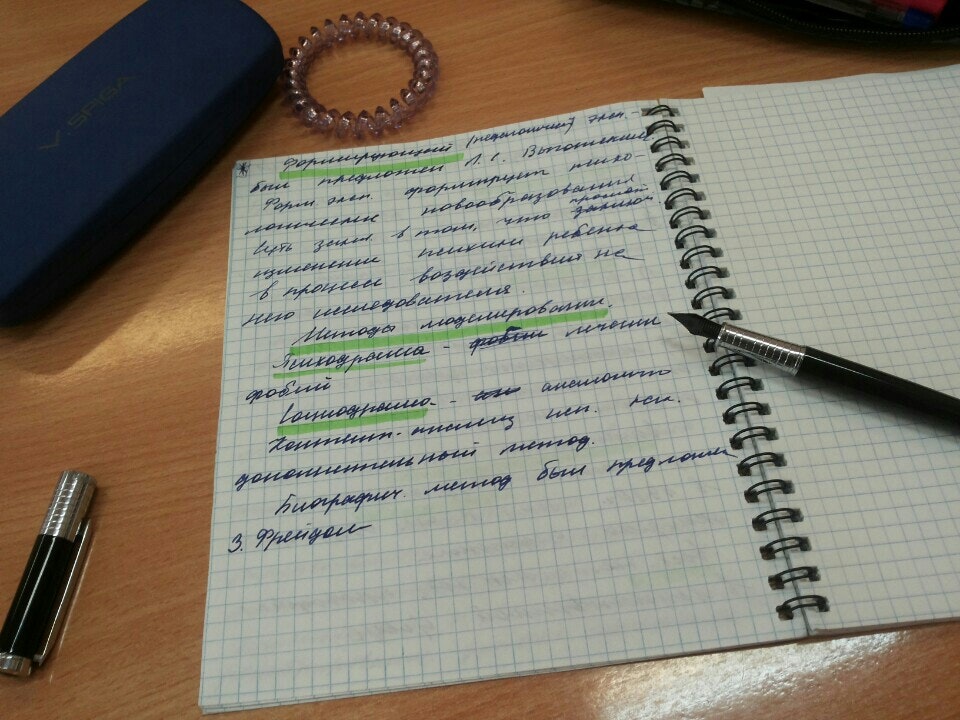 SPIGA
* Формирующий (педагогич.) эксп. -
был предложен Л.С. Выготским
Форм. эксп. формирует психо-
логические новообразования
Суть закл. в том, что происход
изменение психики ребенка
в процессе воздействия на
него исследователя.
Методы моделирования.
Психодрама - лечении
фобий
Социодрама - аналогично
Контент-анализ исп. как
дополнительный метод.
Биографич. метод был предложен
З. Фрейдом